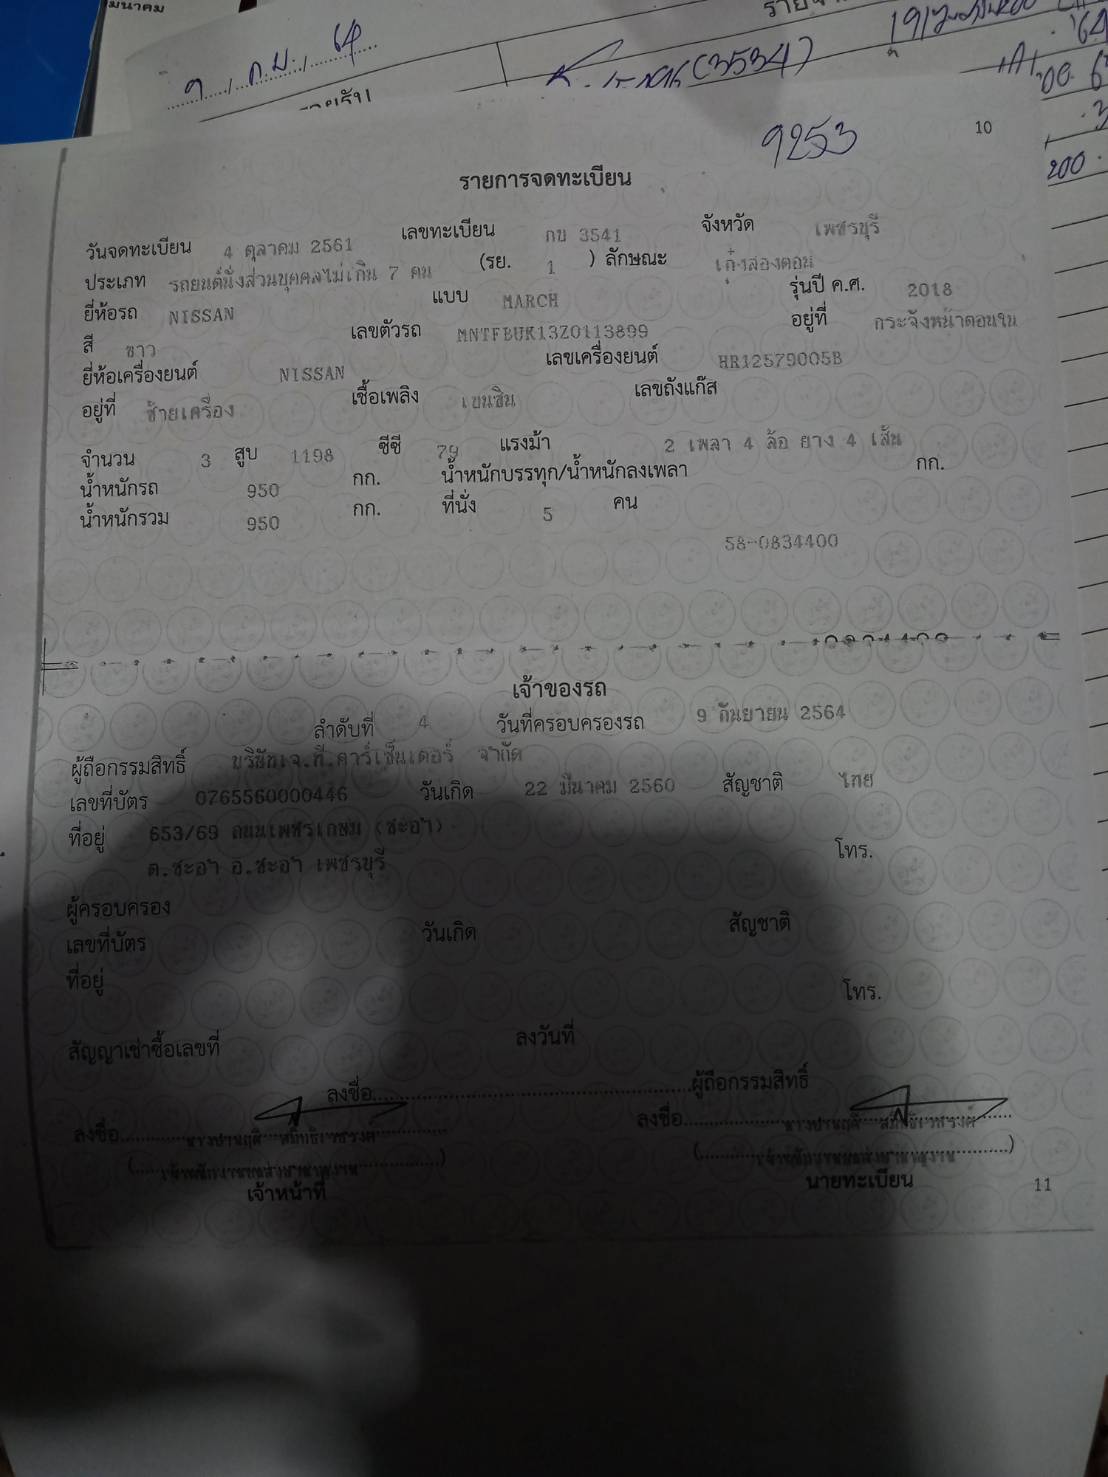 มีนาคม
9253
10
200.
รายการจดทะเบียน
วันจดทะเบียน 4 ตุลาคม 2561 เลขทะเบียน กข 3541 จังหวัด เพชรบุรี
ประเภท รถยนต์นั่งส่วนบุคคลไม่เกิน 7 คน (รย. 1 ) ลักษณะ เก๋งสองตอน
ยี่ห้อรถ NISSAN แบบ MARCH รุ่นปี ค.ศ. 2018
สี ขาว เลขตัวรถ MNTFBUK13Z0113899 อยู่ที่ กระจังหน้าตอนใน
ยี่ห้อเครื่องยนต์ NISSAN เลขเครื่องยนต์ HR12579005B
อยู่ที่ ซ้ายเครื่อง เชื้อเพลิง เบนซิน เลขถังแก๊ส
จำนวน 3 สูบ 1198 ซีซี 79 แรงม้า 2 เพลา 4 ล้อ ยาง 4 เส้น
น้ำหนักรถ 950 กก. น้ำหนักบรรทุก/น้ำหนักลงเพลา กก.
น้ำหนักรวม 950 กก. ที่นั่ง 5 คน
58-0834400
เจ้าของรถ
ลำดับที่ 4 วันที่ครอบครองรถ 9 กันยายน 2564
ผู้ถือกรรมสิทธิ์ บริษัทเจ.ที.คาร์เซ็นเตอร์ จำกัด
เลขที่บัตร 0765560000446 วันเกิด 22 มีนาคม 2560 สัญชาติ ไทย
ที่อยู่ 653/69 ถนนเพชรเกษม (ชะอำ)
ต.ชะอำ อ.ชะอำ เพชรบุรี โทร.
ผู้ครอบครอง
เลขที่บัตร วันเกิด สัญชาติ
ที่อยู่ โทร.
สัญญาเช่าซื้อเลขที่ ลงวันที่
ลงชื่อ ผู้ถือกรรมสิทธิ์
ลงชื่อ ลงชื่อ
เจ้าหน้าที่ นายทะเบียน
11